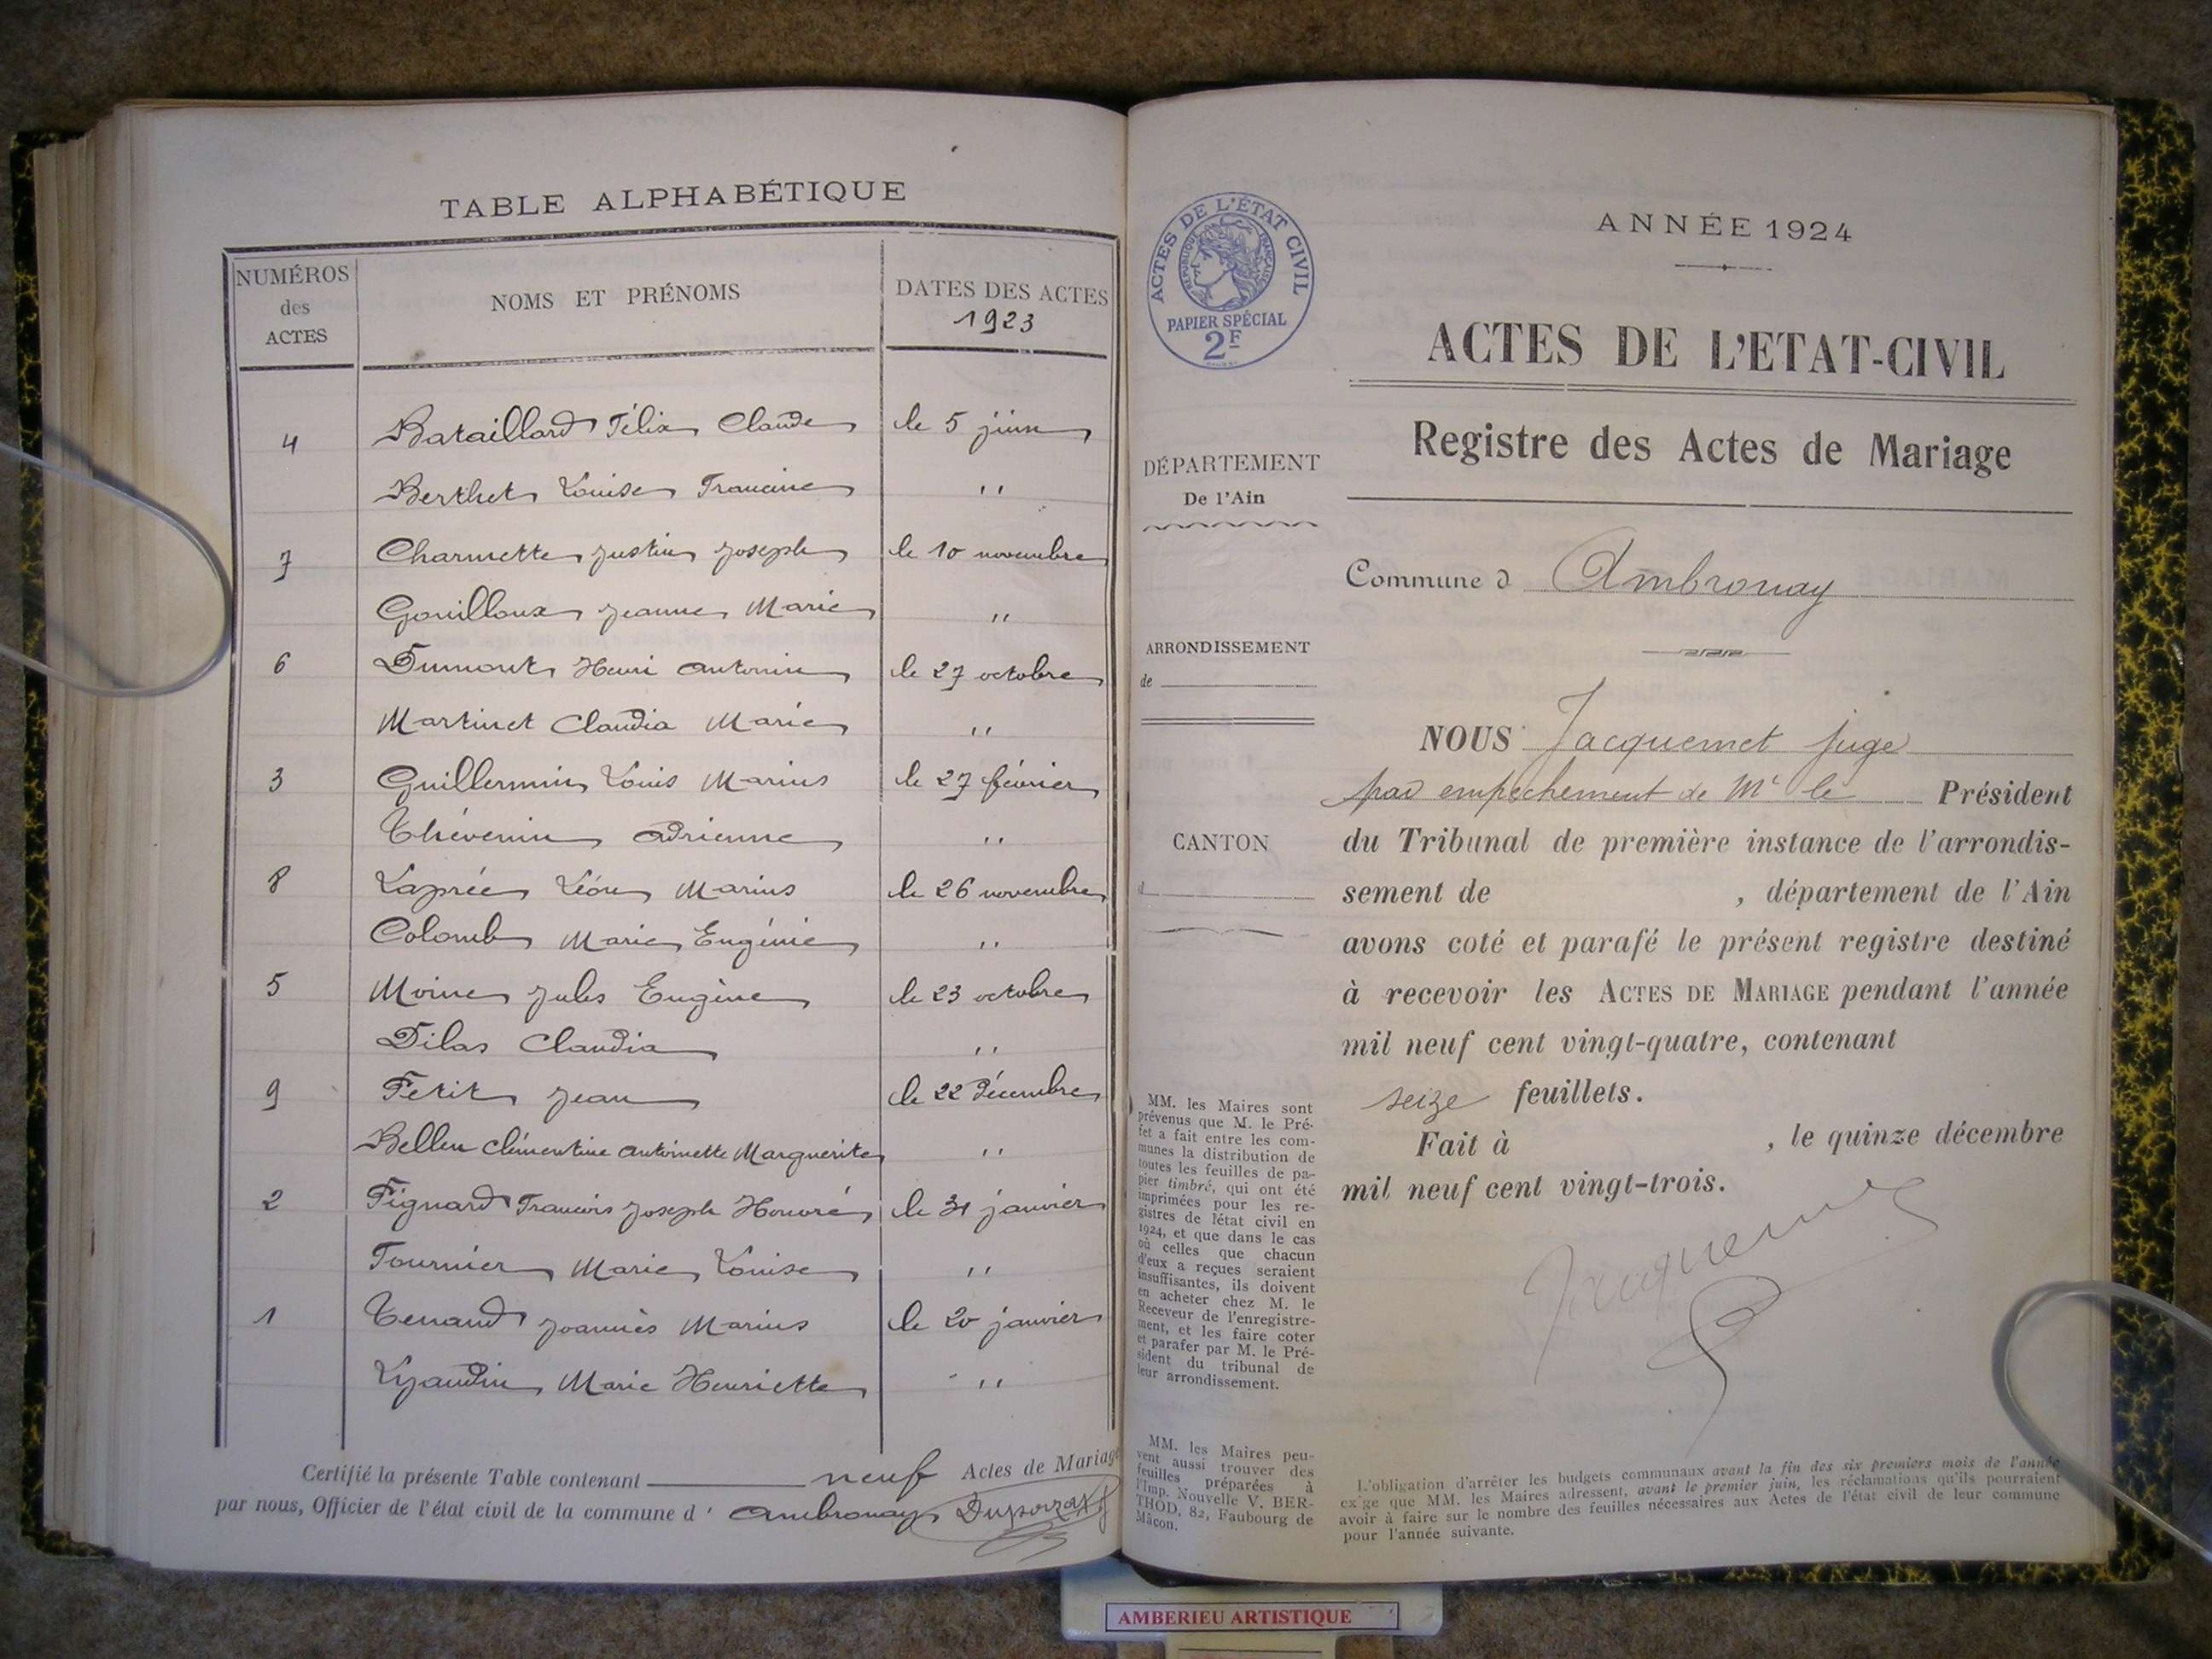 TABLE ALPHABÉTIQUE
NUMÉROS
des
ACTES
NOMS ET PRÉNOMS
DATES DES ACTES
1923
4 Bataillard Félix Claude le 5 juin
Berthet Louise Francine "
7 Charmette Justin Joseph le 10 novembre
Gouilloux Jeanne Marie "
6 Dumont Henri Antonin le 27 octobre
Martinet Claudia Marie "
3 Guillermin Louis Marius le 27 février
Thévenin Adrienne "
8 Laprée Léon Marius le 26 novembre
Colomb Marie Eugénie "
5 Moine Jules Eugène le 23 octobre
Dilas Claudia "
9 Petit Jean le 22 décembre
Belleu Clémentine Antoinette Marguerite "
2 Pignard Francois Joseph Honoré le 31 janvier
Tournier Marie Louise "
1 Tenand Joannès Marius le 20 janvier
Lyaudin Marie Henriette "
Certifié la présente Table contenant neuf Actes de Mariage
par nous, Officier de l'état civil de la commune d' Ambronay
ACTES DE L'ÉTAT CIVIL
RÉPUBLIQUE FRANÇAISE
PAPIER SPÉCIAL
2F
DÉPARTEMENT
De l'Ain
ARRONDISSEMENT
de
CANTON
d
MM. les Maires sont
prévenus que M. le Pré-
fet a fait entre les com-
munes la distribution de
toutes les feuilles de pa-
pier timbré, qui ont été
imprimées pour les re-
gistres de l'état civil en
1924, et que dans le cas
où celles que chacun
d'eux a reçues seraient
insuffisantes, ils doivent
en acheter chez M. le
Receveur de l'enregistre-
ment, et les faire coter
et parafer par M. le Pré-
sident du tribunal de
leur arrondissement.
MM. les Maires peu-
vent aussi trouver des
feuilles préparées à
l'Imp. Nouvelle V. BER-
THOD, 82, Faubourg de
Mâcon.
ANNÉE 1924
ACTES DE L'ETAT-CIVIL
Registre des Actes de Mariage
Commune d Ambronay
NOUS Jacquemet juge
par empêchement de Mr le Président
du Tribunal de première instance de l'arrondis-
sement de , département de l'Ain
avons coté et parafé le présent registre destiné
à recevoir les ACTES DE MARIAGE pendant l'année
mil neuf cent vingt-quatre, contenant
seize feuillets.
Fait à , le quinze décembre
mil neuf cent vingt-trois.
Jacquemet
L'obligation d'arrêter les budgets communaux avant la fin des six premiers mois de l'année
exige que MM. les Maires adressent, avant le premier juin, les réclamations qu'ils pourraient
avoir à faire sur le nombre des feuilles nécessaires aux Actes de l'état civil de leur commune
pour l'année suivante.
AMBERIEU ARTISTIQUE